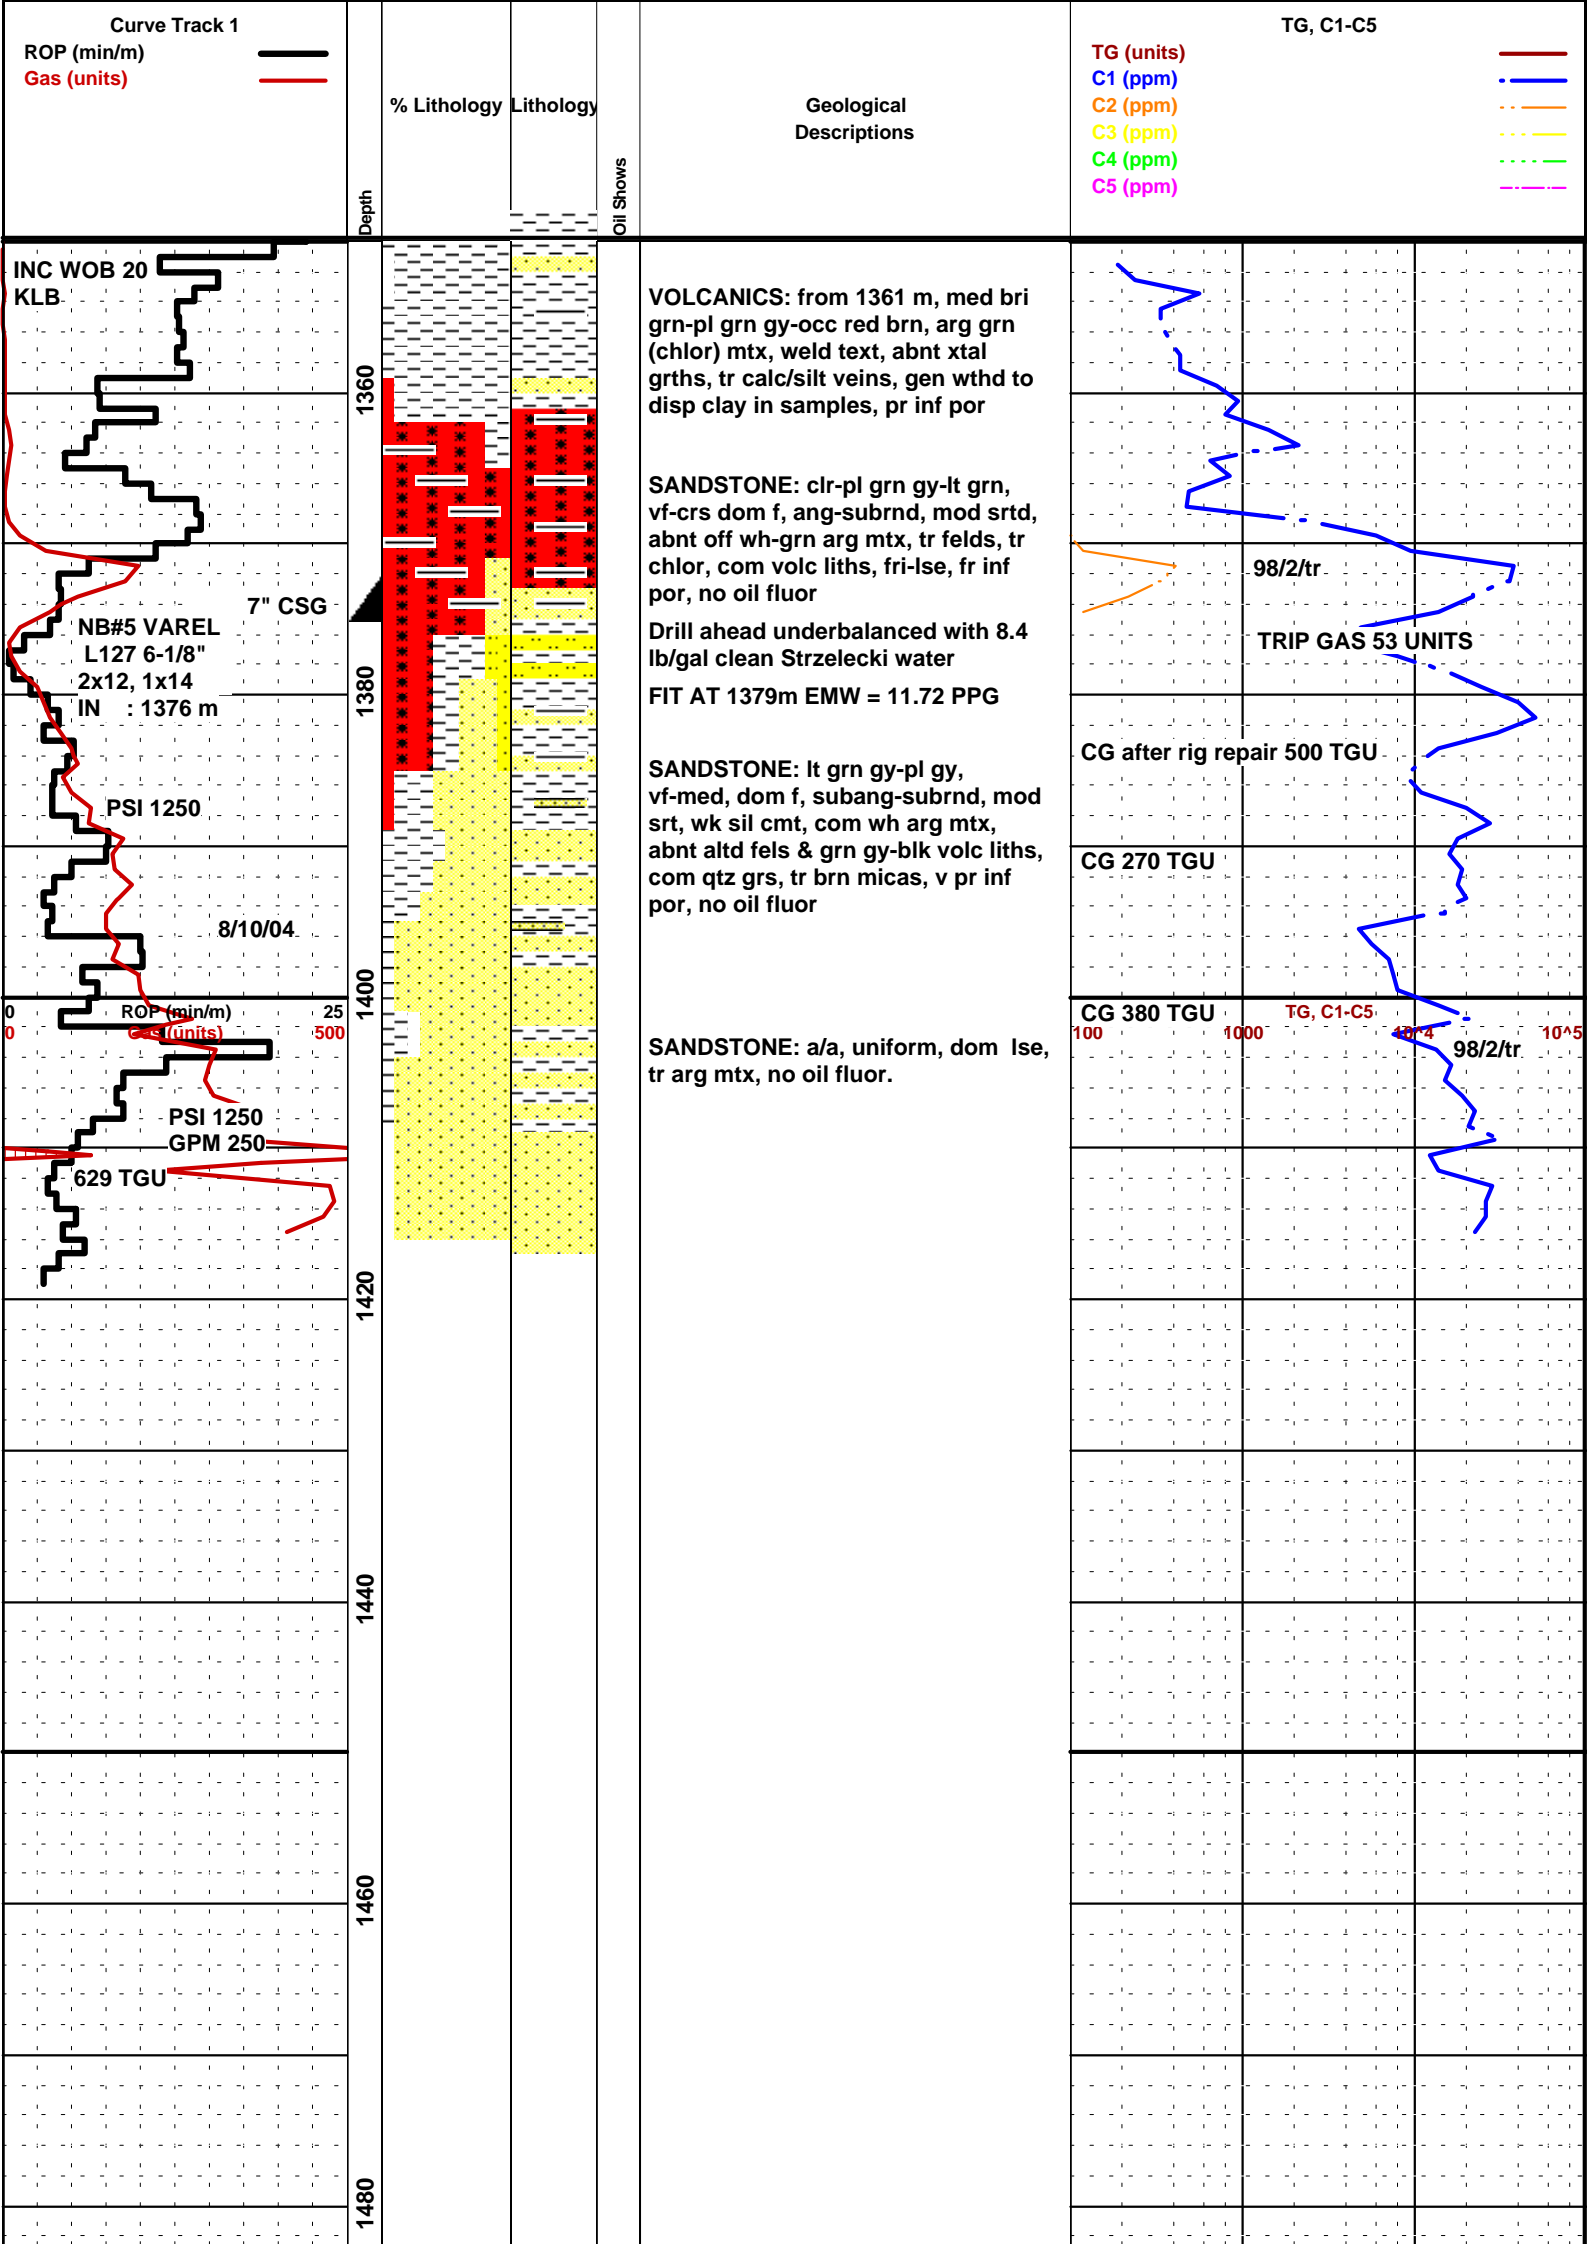 Curve Track 1
ROP (min/m)
Gas (units)
Depth
% Lithology
Lithology
Oil Shows
Geological
Descriptions
TG, C1-C5
TG (units)
C1 (ppm)
C2 (ppm)
C3 (ppm)
C4 (ppm)
C5 (ppm)
INC WOB 20
KLB
7" CSG
NB#5 VAREL
L127 6-1/8"
2x12, 1x14
IN : 1376 m
PSI 1250
8/10/04
0 ROP (min/m) 25
0 Gas (units) 500
PSI 1250
GPM 250
629 TGU
1360
1380
1400
1420
1440
1460
1480
VOLCANICS: from 1361 m, med bri
grn-pl grn gy-occ red brn, arg grn
(chlor) mtx, weld text, abnt xtal
grths, tr calc/silt veins, gen wthd to
disp clay in samples, pr inf por
SANDSTONE: clr-pl grn gy-lt grn,
vf-crs dom f, ang-subrnd, mod srtd,
abnt off wh-grn arg mtx, tr felds, tr
chlor, com volc liths, fri-lse, fr inf
por, no oil fluor
Drill ahead underbalanced with 8.4
lb/gal clean Strzelecki water
FIT AT 1379m EMW = 11.72 PPG
SANDSTONE: lt grn gy-pl gy,
vf-med, dom f, subang-subrnd, mod
srt, wk sil cmt, com wh arg mtx,
abnt altd fels & grn gy-blk volc liths,
com qtz grs, tr brn micas, v pr inf
por, no oil fluor
SANDSTONE: a/a, uniform, dom lse,
tr arg mtx, no oil fluor.
98/2/tr
TRIP GAS 53 UNITS
CG after rig repair 500 TGU
CG 270 TGU
CG 380 TGU
100 1000 TG, C1-C5 10^4 10^5
98/2/tr